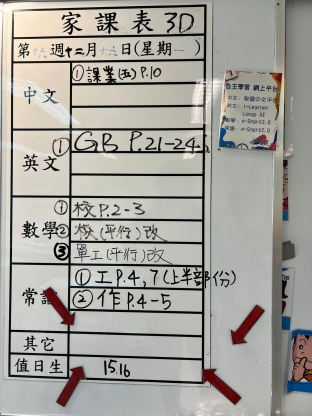 家課表 3D
第十六週十二月十六日(星期一)
中文
①課業(五)P.10
英文
①GB P.21-24
數學
①校P.2-3
②校(平行)改
③單工(平行)改
常識
①工P.4,7(上半部份)
②作P.4-5
其它
值日生
15.16
自主學習 網上平台
i-Learner